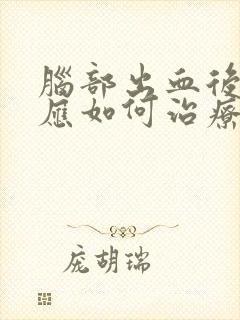 腦部出血後
應如何治療
庞胡瑞